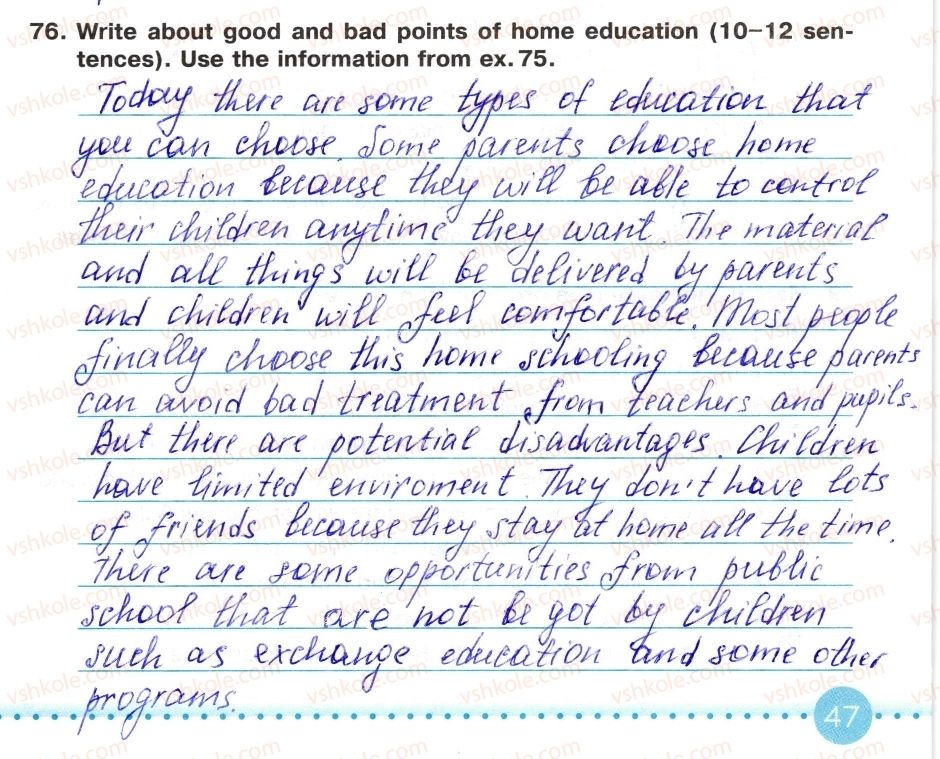 76. Write about good and bad points of home education (10–12 sen-
tences). Use the information from ex. 75.
Today there are some types of education that
you can choose. Some parents choose home
education because they will be able to control
their children anytime they want. The material
and all things will be delivered by parents
and children will feel comfortable. Most people
finally choose this home schooling because parents
can avoid bad treatment from teachers and pupils.
But there are potential disadvantages. Children
have limited enviroment. They don't have lots
of friends because they stay at home all the time.
There are some opportunities from public
school that are not be got by children
such as exchange education and some other
programs.
47